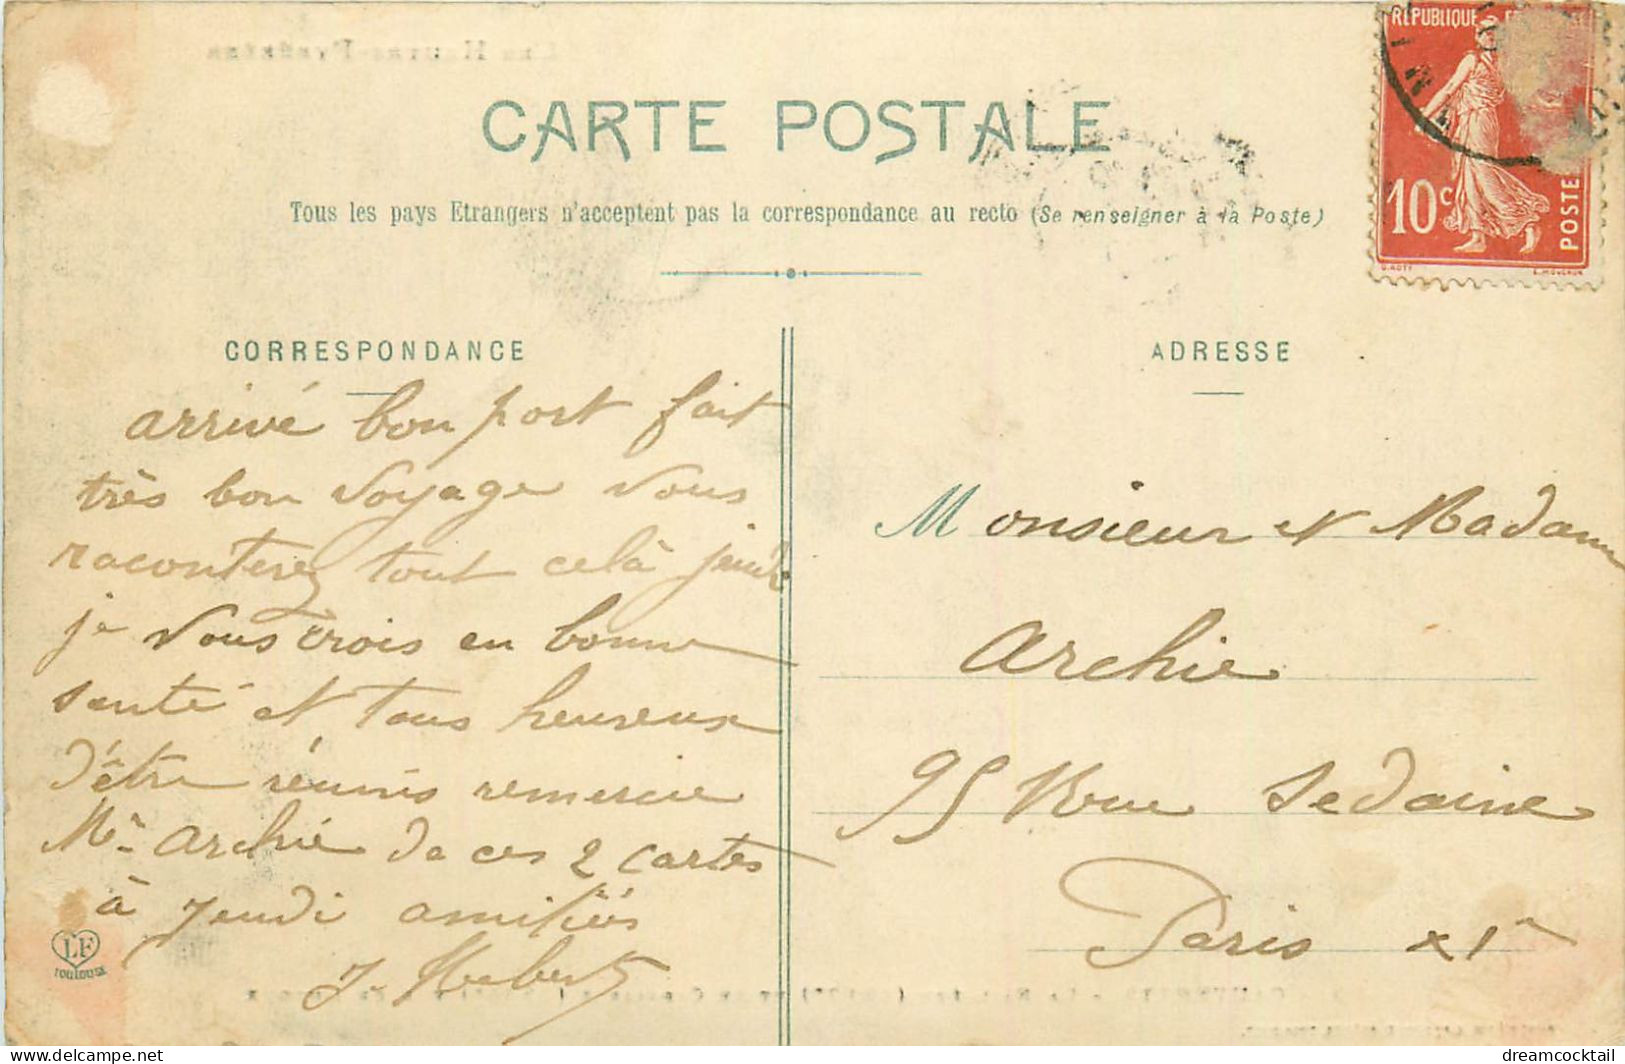 CARTE POSTALE
Tous les pays Etrangers n'acceptent pas la correspondance au recto (Se renseigner à la Poste)
RÉPUBLIQUE
10c
POSTE
O. ROTY
E. MOUCHON
CORRESPONDANCE
arrivé bon port fait
très bon voyage vous
raconterez tout celà jeudi
je vous crois en bonne
santé et tous heureux
d'être réunis remercie
Mr Archie de ces 2 cartes
à jeudi amitiés
J. Hebert
LF
TOULOUSE
ADRESSE
Monsieur et Madame
Archie
95 Rue Sedaine
Paris XIe
delcampe.net
dreamcocktail